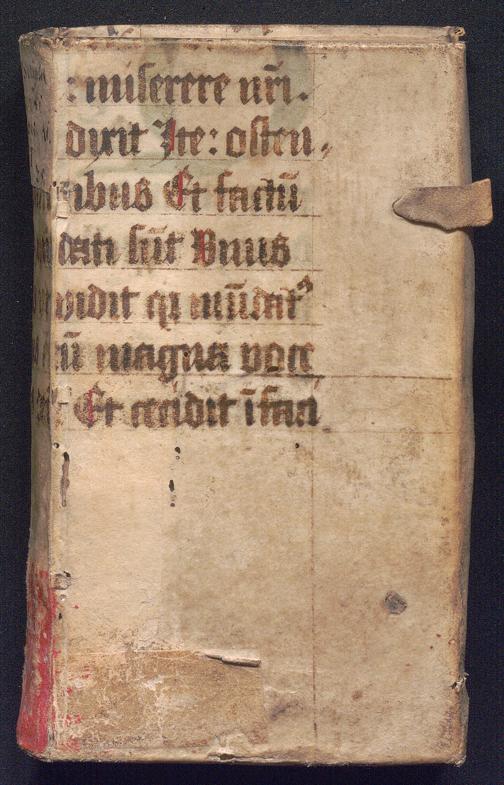 : miserere nr̄i.
dixit Ite: osten,
ibus Et factū
dati sūt Vnus
vidit q̇ mūdat᾽
cū magna voce
Et cecidit ī faci